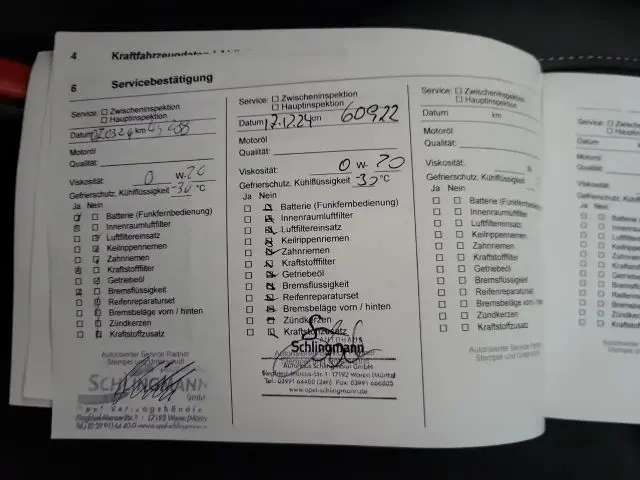 4 Kraftfahrzeugdaten
6 Servicebestätigung
Service: ☐ Zwischeninspektion
☐ Hauptinspektion
Datum km
Motoröl
Qualität:
Viskosität: 0 W-20
Gefrierschutz, Kühlflüssigkeit -30 °C
Ja Nein
Batterie (Funkfernbedienung)
Innenraumluftfilter
Luftfiltereinsatz
Keilrippenriemen
Zahnriemen
Kraftstofffilter
Getriebeöl
Bremsflüssigkeit
Reifenreparaturset
Bremsbeläge vorn / hinten
Zündkerzen
Kraftstoffzusatz
Autorisierter Service Partner
Stempel und Unterschrift
SCHLINGMANN
GmbH
Opel Vertragshändler
17192 Waren (Müritz)
Service: ☐ Zwischeninspektion
☐ Hauptinspektion
Datum 17.12.24 km 60922
Motoröl
Qualität:
Viskosität: 0 W- 20
Gefrierschutz, Kühlflüssigkeit -30 °C
Ja Nein
Batterie (Funkfernbedienung)
Innenraumluftfilter
Luftfiltereinsatz
Keilrippenriemen
Zahnriemen
Kraftstofffilter
Getriebeöl
Bremsflüssigkeit
Reifenreparaturset
Bremsbeläge vorn / hinten
Zündkerzen
Kraftstoffzusatz
AUTOHAUS
Schlingmann
Autohaus Schlingmann GmbH
Siegfried-Marcus-Str. 1 · 17192 Waren (Müritz)
Tel.: 03991 64400 (24h) Fax: 03991 666805
www.opel-schlingmann.de
Service: ☐ Zwischeninspektion
☐ Hauptinspektion
Datum km
Motoröl
Qualität:
Viskosität:
Gefrierschutz, Kühlflüssigkeit
Ja Nein
Batterie (Funkfernbedienung)
Innenraumluftfilter
Luftfiltereinsatz
Keilrippenriemen
Zahnriemen
Kraftstofffilter
Getriebeöl
Bremsflüssigkeit
Reifenreparaturset
Bremsbeläge vorn / hinten
Zündkerzen
Kraftstoffzusatz
Autorisierter Service Partner
Stempel und Unterschrift
Service:
Datum
Motoröl
Qualität:
Viskosität:
Gefrierschutz,
Ja Nein